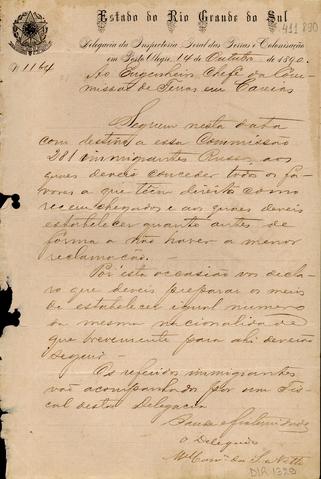 Estado do Rio Grande do Sul
411 890
Delegacia da Inspectoria Geral das Terras e Colonisação
em Porto Alegre, 14 de Outubro de 1890.
Nº 1164
Ao Engenheiro Chefe da Com-
missão de Terras em Caxias
Seguem nesta data
com destino a essa Commissão
281 immigrantes Russos aos
quaes deveis conceder todos os fa-
vores a que têm direito como
recem chegados e aos quaes deveis
estabelecer quanto antes de
forma a não haver a menor
reclamação.
Por esta occasião vos decla-
ro que deveis preparar os meios
de estabelecer igual numero
da mesma nacionalidade
que brevemente para ahi deverão
seguir.
Os referidos immigrantes
vão acompanhados por um Fis-
cal desta Delegacia
Saude e Fraternidade
O Delegado
da S.
DIR 1329